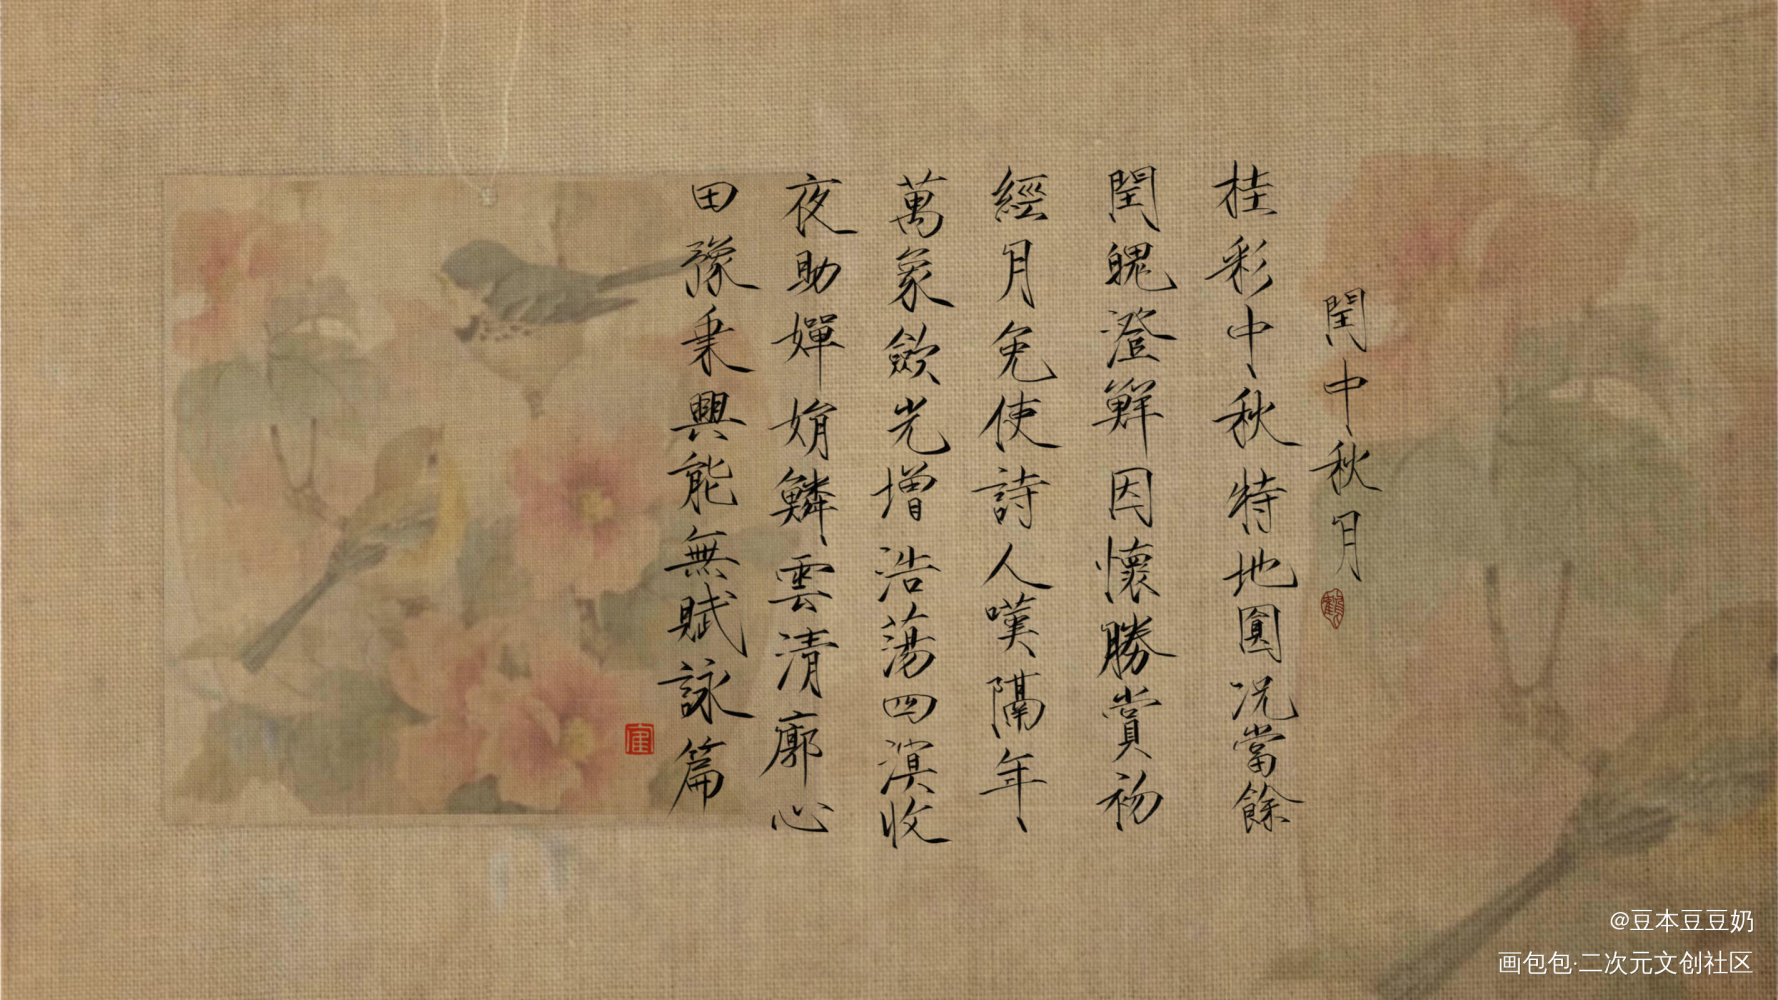 閏中秋月
桂彩中秋特地圓况當餘
閏魄澄鮮因懷勝賞初
經月免使詩人嘆隔年
萬象斂光增浩蕩四溟收
夜助嬋娟鱗雲清廓心
田豫乘興能無賦詠篇
@豆本豆豆奶
画包包·二次元文创社区